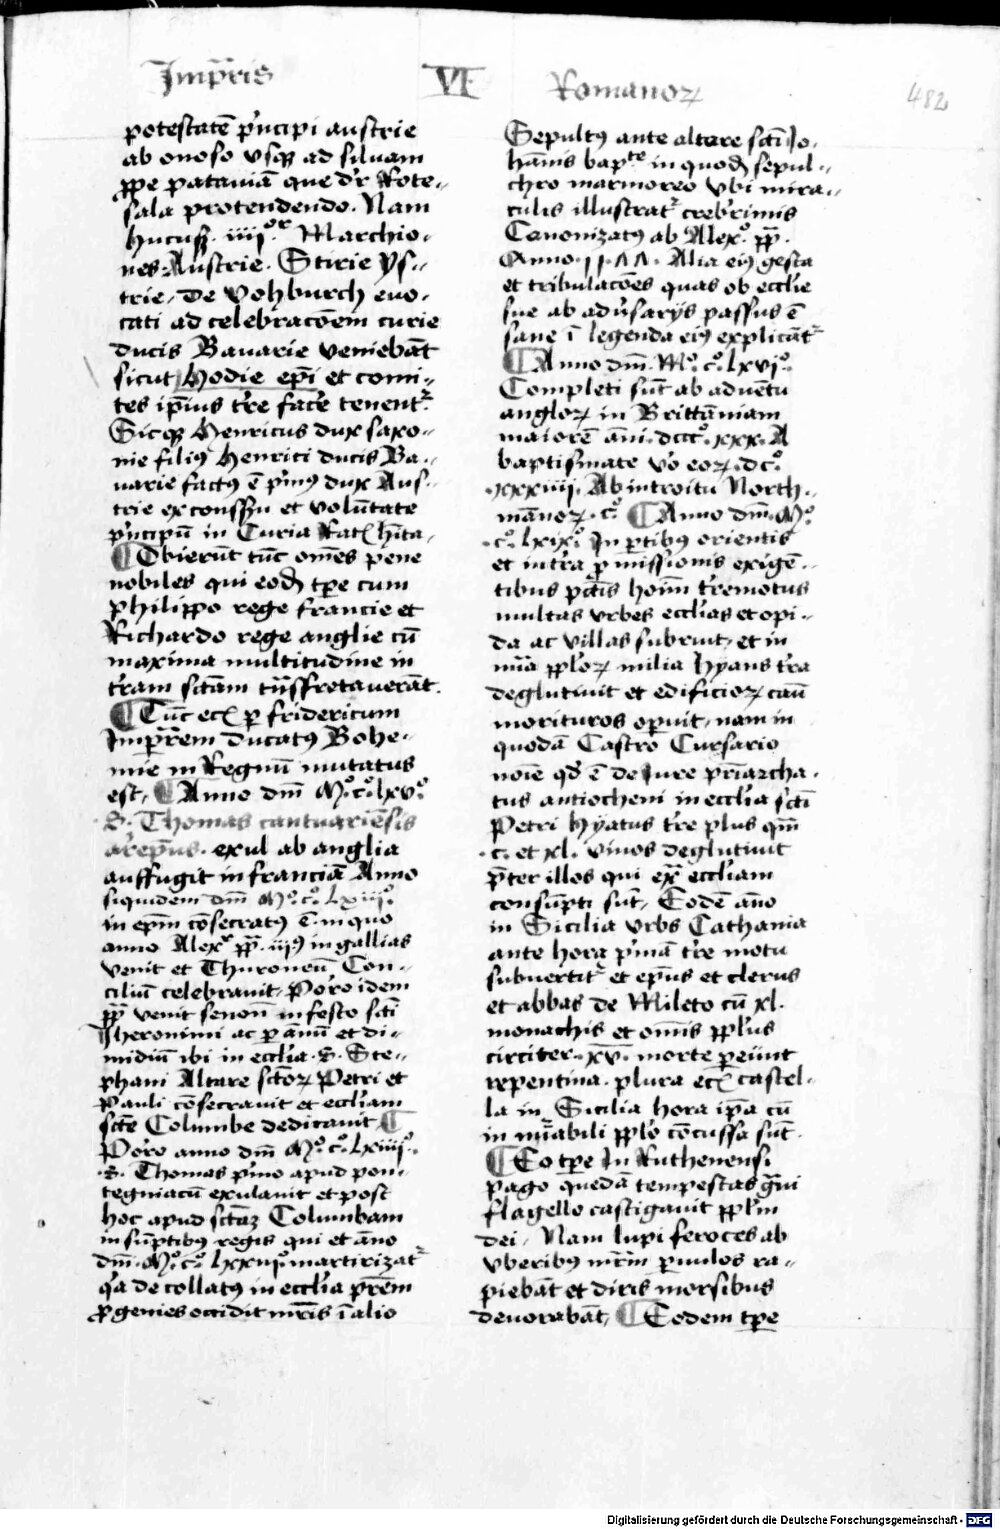 Imꝑris VI Romanoꝝ 482
potestatē pͥncipi austrie
ab onoso vsqꝫ ad siluam
ꝓpe patauiā que dr̄ Rote-
sala protendendo. Nam
hucusqꝫ .iiijoͬ. Marchio-
nes Austrie. Stirie ys-
trie, de Vohburch euo-
cati ad celebracōem curie
ducis Bauarie veniebāt
sicut hodie ep̄i et comi-
tes ip̄ius tr̄e facͤre tenentᷣ.
Sicqꝫ Henricus dux saxo-
nie filiꝰ Henrici ducis Ba-
uarie factꝰ ē pͥmꝰ dux Aus-
trie ex consensu et volūtate
pͥncipū in Curia Ratꝭ hīta.
¶ Obierūt tūc om̄es pene
nobiles qui eodē tꝑe cum
philippo rege francie et
Richardo rege anglie cū
maxima multitudine in
tr̄am sctām tn̄sfretauerāt.
¶ Tūc ecꝭ ꝑ fridericum
Imꝑr̄em ducatꝰ Bohe-
mie in Regnū mutatus
est, ¶ Anno dn̄i Mͦ.cͦ.lxvͦ.
.S. Thomas cantuariēsis
ar̄ep̄us. exul ab anglia
auffugit in franciā Anno
siquidem dn̄i Mͦ.cͦ.Lxiijͦ.
in ep̄m cōsecratꝰ ē. in quo
anno Alexͬ pp̄. iijꝰ in gallias
venit et Thuroneū Con-
ciliū celebrauit. Poͬro idem
pp̄ venit senoñ in festo scti
Jheronimi ac ꝑ annū et di-
midiū ibi in ecclia .S. Ste-
phani Altare sctōꝝ Petri et
Pauli cōsecrauit et eccliam
scte Columbe dedicauit ¶
Poͬro anno dn̄i Mͦ.cͦ.Lxiiijͦ.
.S. Thomas pͥmo apud pon-
tegniacū exulauit et post
hoc apud sctāꝫ Columbam
in sūptibꝰ regis qui et āno
dn̄i .Mͦ.cͦ. lxxiijͦ. martirizatᷣ
qͥa decollatꝰ in ecclia pr̄em
ꝓgenies occidit mr̄is ī alio
Sepultꝰ ante altare scti Jo-
hānis bapᵗᵉ in quodā sepul-
chro marmoreo vbi mira-
culis illustratᷣ crebͬrimis
Canonizatꝰ ab Alexͦ. pp̄.
Anno .11.ΛΛ. Alia eiꝰ gesta
et tribulacōes quas ob ecclie
sue ab adu̓sarijs passus ē
sane ī legenda eiꝰ explicātᷣ
¶ Anno dn̄i. Mͦ.cͦ.lxvjͦ.
Completi sūt ab aduētu
angloꝝ in Brittāniam
maiorē āni .dccͦ.xxx. A
baptismate vͦo eoꝝ .dcͦ.
.xxxiiij. Ab introitu North-
mānoꝝ .cͦ. ¶ Anno dn̄i .Mͦ.
.cͦ.lxixͦ. In ꝑtibꝰ orientis
et intͬra ꝓmissionis exigē-
tibus pctīs hoīm tr̄emotus
multas vrbes ecclias et opi-
da ac villas subruit, et in
mͥa pploꝝ milia hyans tr̄a
deglutiuit et edificioꝝ casu
morituros oꝑuit, nam in
quodā Castro Cursario
noīe qd̓ ē de iure pr̄iarcha-
tus antiocheni in ecclia scti
Petri hyatus tr̄e plus qm̄
.c. et xl. viuos deglutiuit
p̄ter illos qui exͣ eccliam
consūpti sūt, Eodē āno
in Sicilia vrbs Cathania
ante horā pͥmā tr̄e motu
subuertitᷣ et ep̄us et clerus
et abbas de Mileto cū xl.
monachis et om̄is pplus
circiter .xv. morte ꝑeiīnt
repentina. plura ecꝭ castel-
la in Sicilia hora ip̄a cū
in nu̓abili pplo cōcussa sūt.
¶ Eo tꝑe In Ruthenensi
pago quedā tempestas gͣui
flagello castigauit pplm
dei. Nam lupi feroces ab
vberibꝰ mr̄m ꝑuulos ra-
piebāt et diris morsibus
deuorabāt, ¶ Eodem tꝑe
Digitalisierung gefördert durch die Deutsche Forschungsgemeinschaft - DFG